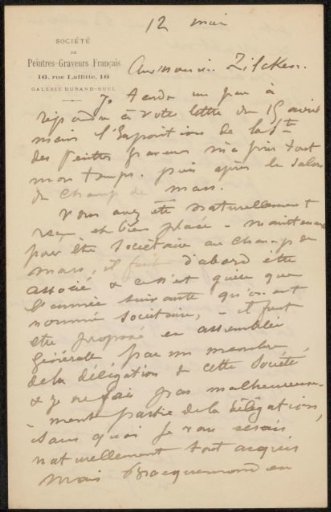 SOCIÉTÉ
DE
Peintres-Graveurs Français
16, rue Laffitte, 16
GALERIE DURAND-RUEL
12 mai
Cher Monsieur Zilcken.
Je tarde un peu à
répondre à votre lettre du 15 avril
mais l'Exposition de la Sté
des Peintres graveurs m'a pris tout
mon temps. puis après le Salon
du Champ de mars.
Vous avez été naturellement
reçu et bien placé - maintenant
pour être Sociétaire au Champ de
mars, il faut d'abord être
associé & ce n'est guère que
l'année suivante qu'on est
nommé Sociétaire, - il faut
être proposé en assemblée
Générale par un membre
de la délégation de cette Société,
& je ne fais pas malheureuse-
-ment partie de la délégation,
sans quoi je vous serais
naturellement tout acquis
mais Bracquemond en